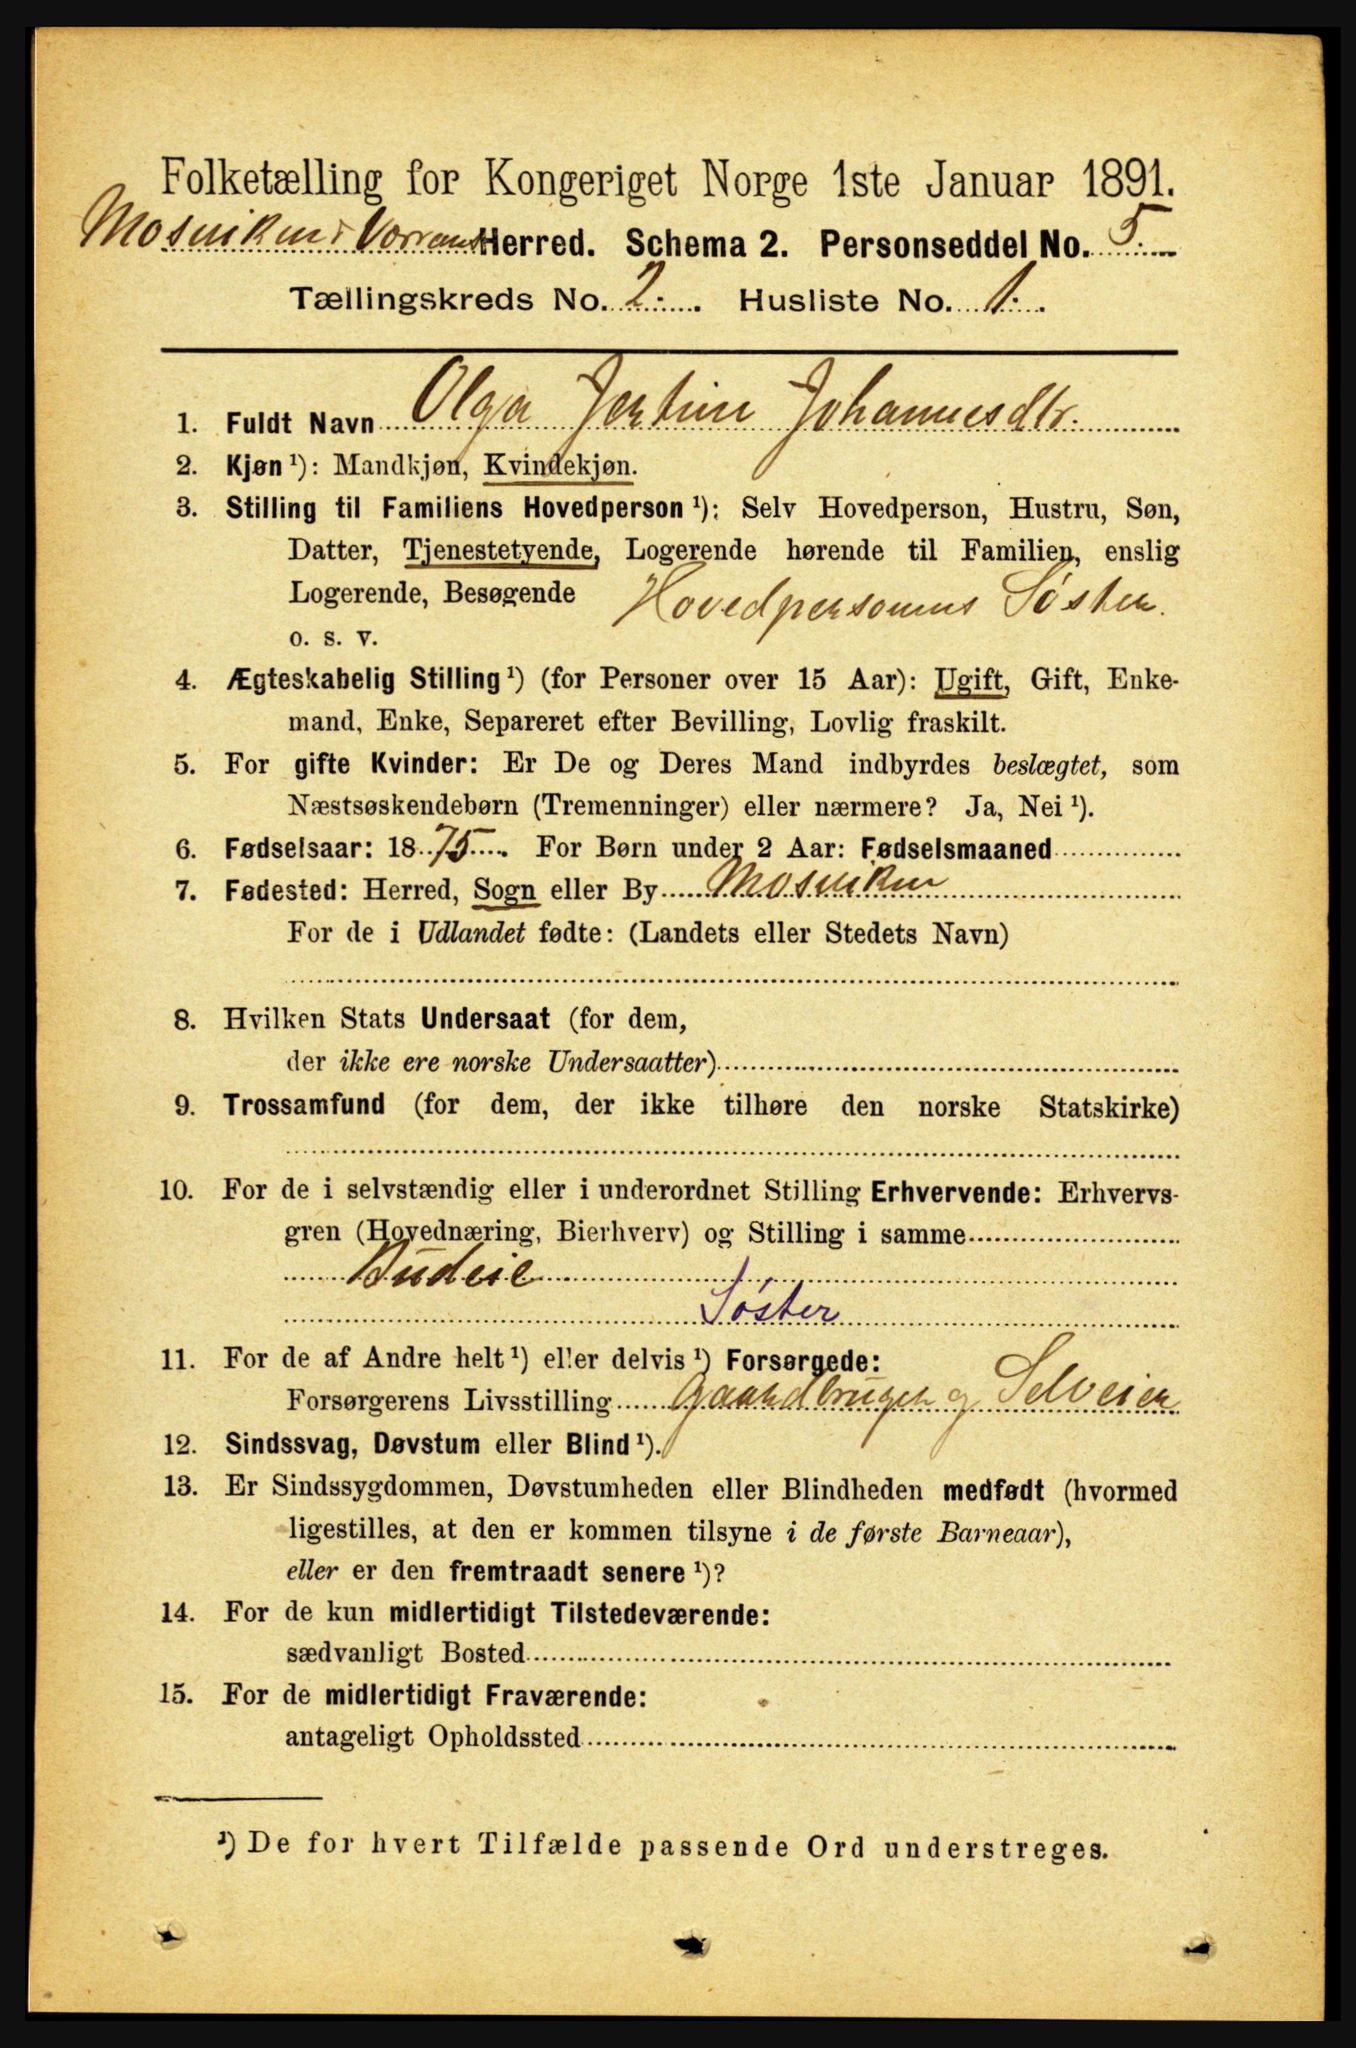 Folketælling for Kongeriget Norge 1ste Januar 1891.
Mosviken & Vorran Herred. Schema 2. Personseddel No. 5.
Tællingskreds No. 2. Husliste No. 1.
1. Fuldt Navn Olga Johannesdtr.
2. Kjøn ¹): Mandkjøn, Kvindekjøn.
3. Stilling til Familiens Hovedperson ¹): Selv Hovedperson, Hustru, Søn,
Datter, Tjenestetyende, Logerende hørende til Familien, enslig
Logerende, Besøgende Hovedpersonens Søster.
o. s. v.
4. Ægteskabelig Stilling ¹) (for Personer over 15 Aar): Ugift, Gift, Enke-
mand, Enke, Separeret efter Bevilling, Lovlig fraskilt.
5. For gifte Kvinder: Er De og Deres Mand indbyrdes beslægtet, som
Næstsøskendebørn (Tremenninger) eller nærmere? Ja, Nei ¹).
6. Fødselsaar: 1875. For Børn under 2 Aar: Fødselsmaaned
7. Fødested: Herred, Sogn eller By Mosviken
For de i Udlandet fødte: (Landets eller Stedets Navn)
8. Hvilken Stats Undersaat (for dem,
der ikke ere norske Undersaatter)
9. Trossamfund (for dem, der ikke tilhøre den norske Statskirke)
10. For de i selvstændig eller i underordnet Stilling Erhvervende: Erhvervs-
gren (Hovednæring, Bierhverv) og Stilling i samme
Budeie
Søster
11. For de af Andre helt ¹) eller delvis ¹) Forsørgede:
Forsørgerens Livsstilling Gaardbruger og Selveier
12. Sindssvag, Døvstum eller Blind ¹).
13. Er Sindssygdommen, Døvstumheden eller Blindheden medfødt (hvormed
ligestilles, at den er kommen tilsyne i de første Barneaar),
eller er den fremtraadt senere ¹)?
14. For de kun midlertidigt Tilstedeværende:
sædvanligt Bosted
15. For de midlertidigt Fraværende:
antageligt Opholdssted
¹) De for hvert Tilfælde passende Ord understreges.